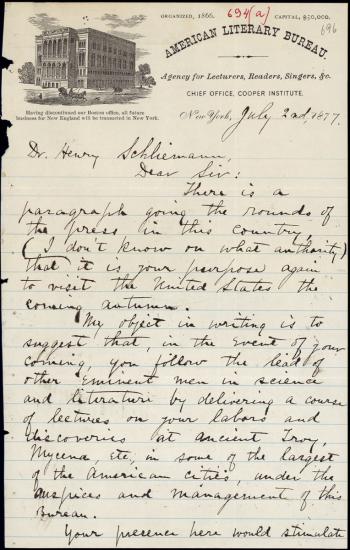 ORGANIZED, 1866.
694(a)
CAPITAL, $50,000.
696
AMERICAN LITERARY BUREAU.
Agency for Lecturers, Readers, Singers, &c.
CHIEF OFFICE, COOPER INSTITUTE.
Having discontinued our Boston office, all future
business for New England will be transacted in New York.
New York, July 2nd, 1877.
Dr. Henry Schliemann,
Dear Sir:
There is a
paragraph going the rounds of
the press in this country,
(I don't know on what authority)
that it is your purpose again
to visit the United States the
coming autumn.
My object in writing is to
suggest that, in the event of your
coming, you follow the lead of
other eminent men in science
and literature by delivering a course
of lectures on your labors and
discoveries at ancient Troy,
Mycena, Etc, in some of the largest
of the American cities, under the
auspices and management of this
Bureau.
Your presence here would stimulate